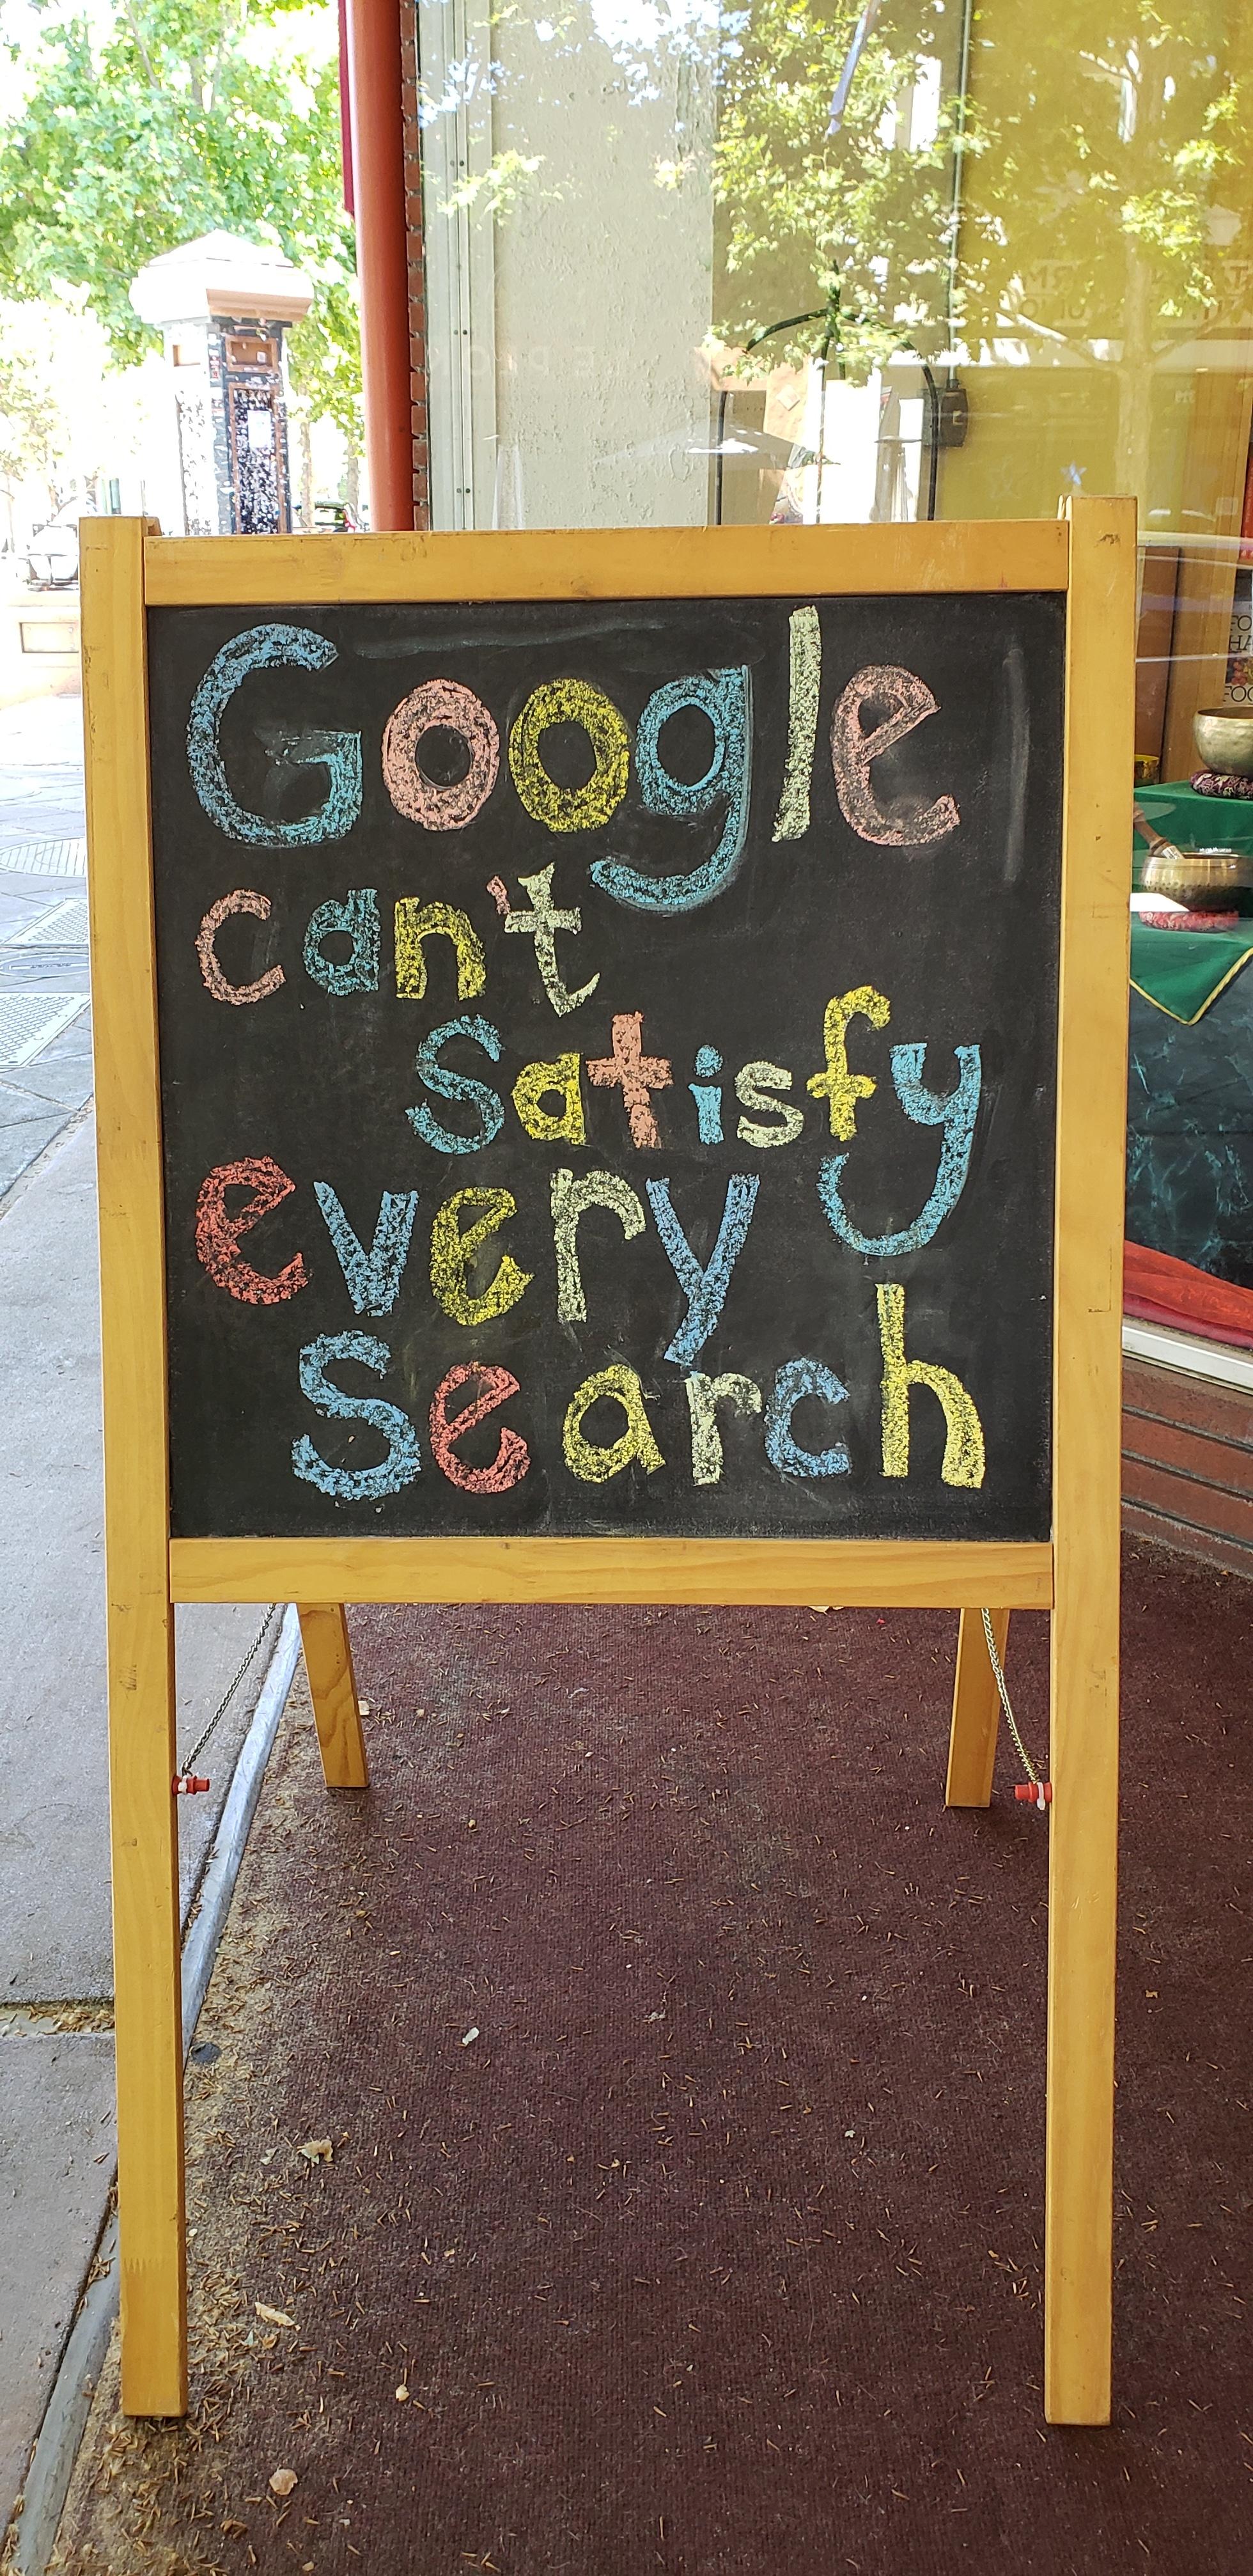 Google
can't
Satisfy
every
Search